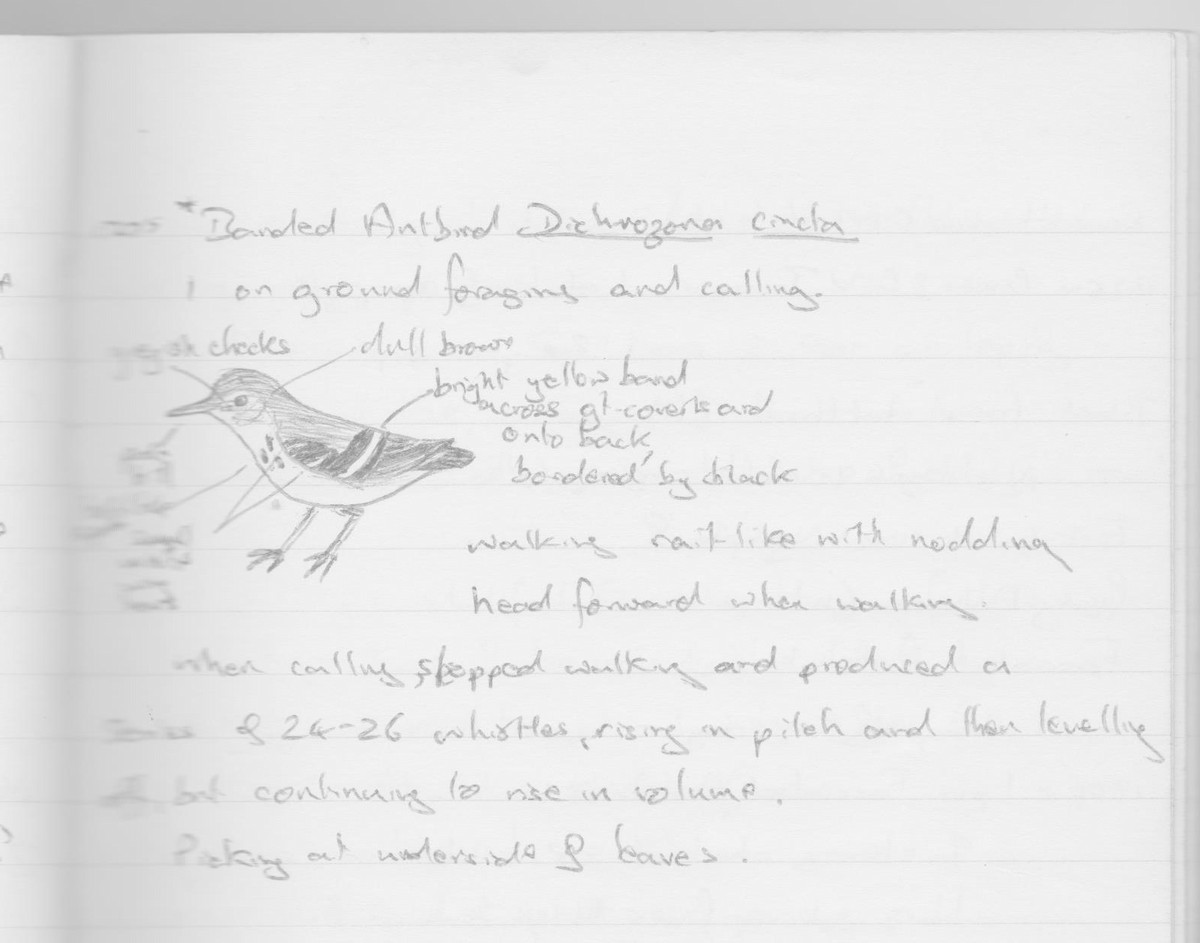 * Banded Antbird Dichrozona cincta
1 on ground foraging and calling.
cheeks
dull brown
bright yellow band
across gt-coverts and
onto back,
bordered by black
walking rail-like with nodding
head forward when walking.
when calling, stopped walking and produced a
series of 24-26 whistles, rising in pitch and then levelling
but continuing to rise in volume.
Picking at underside of leaves.